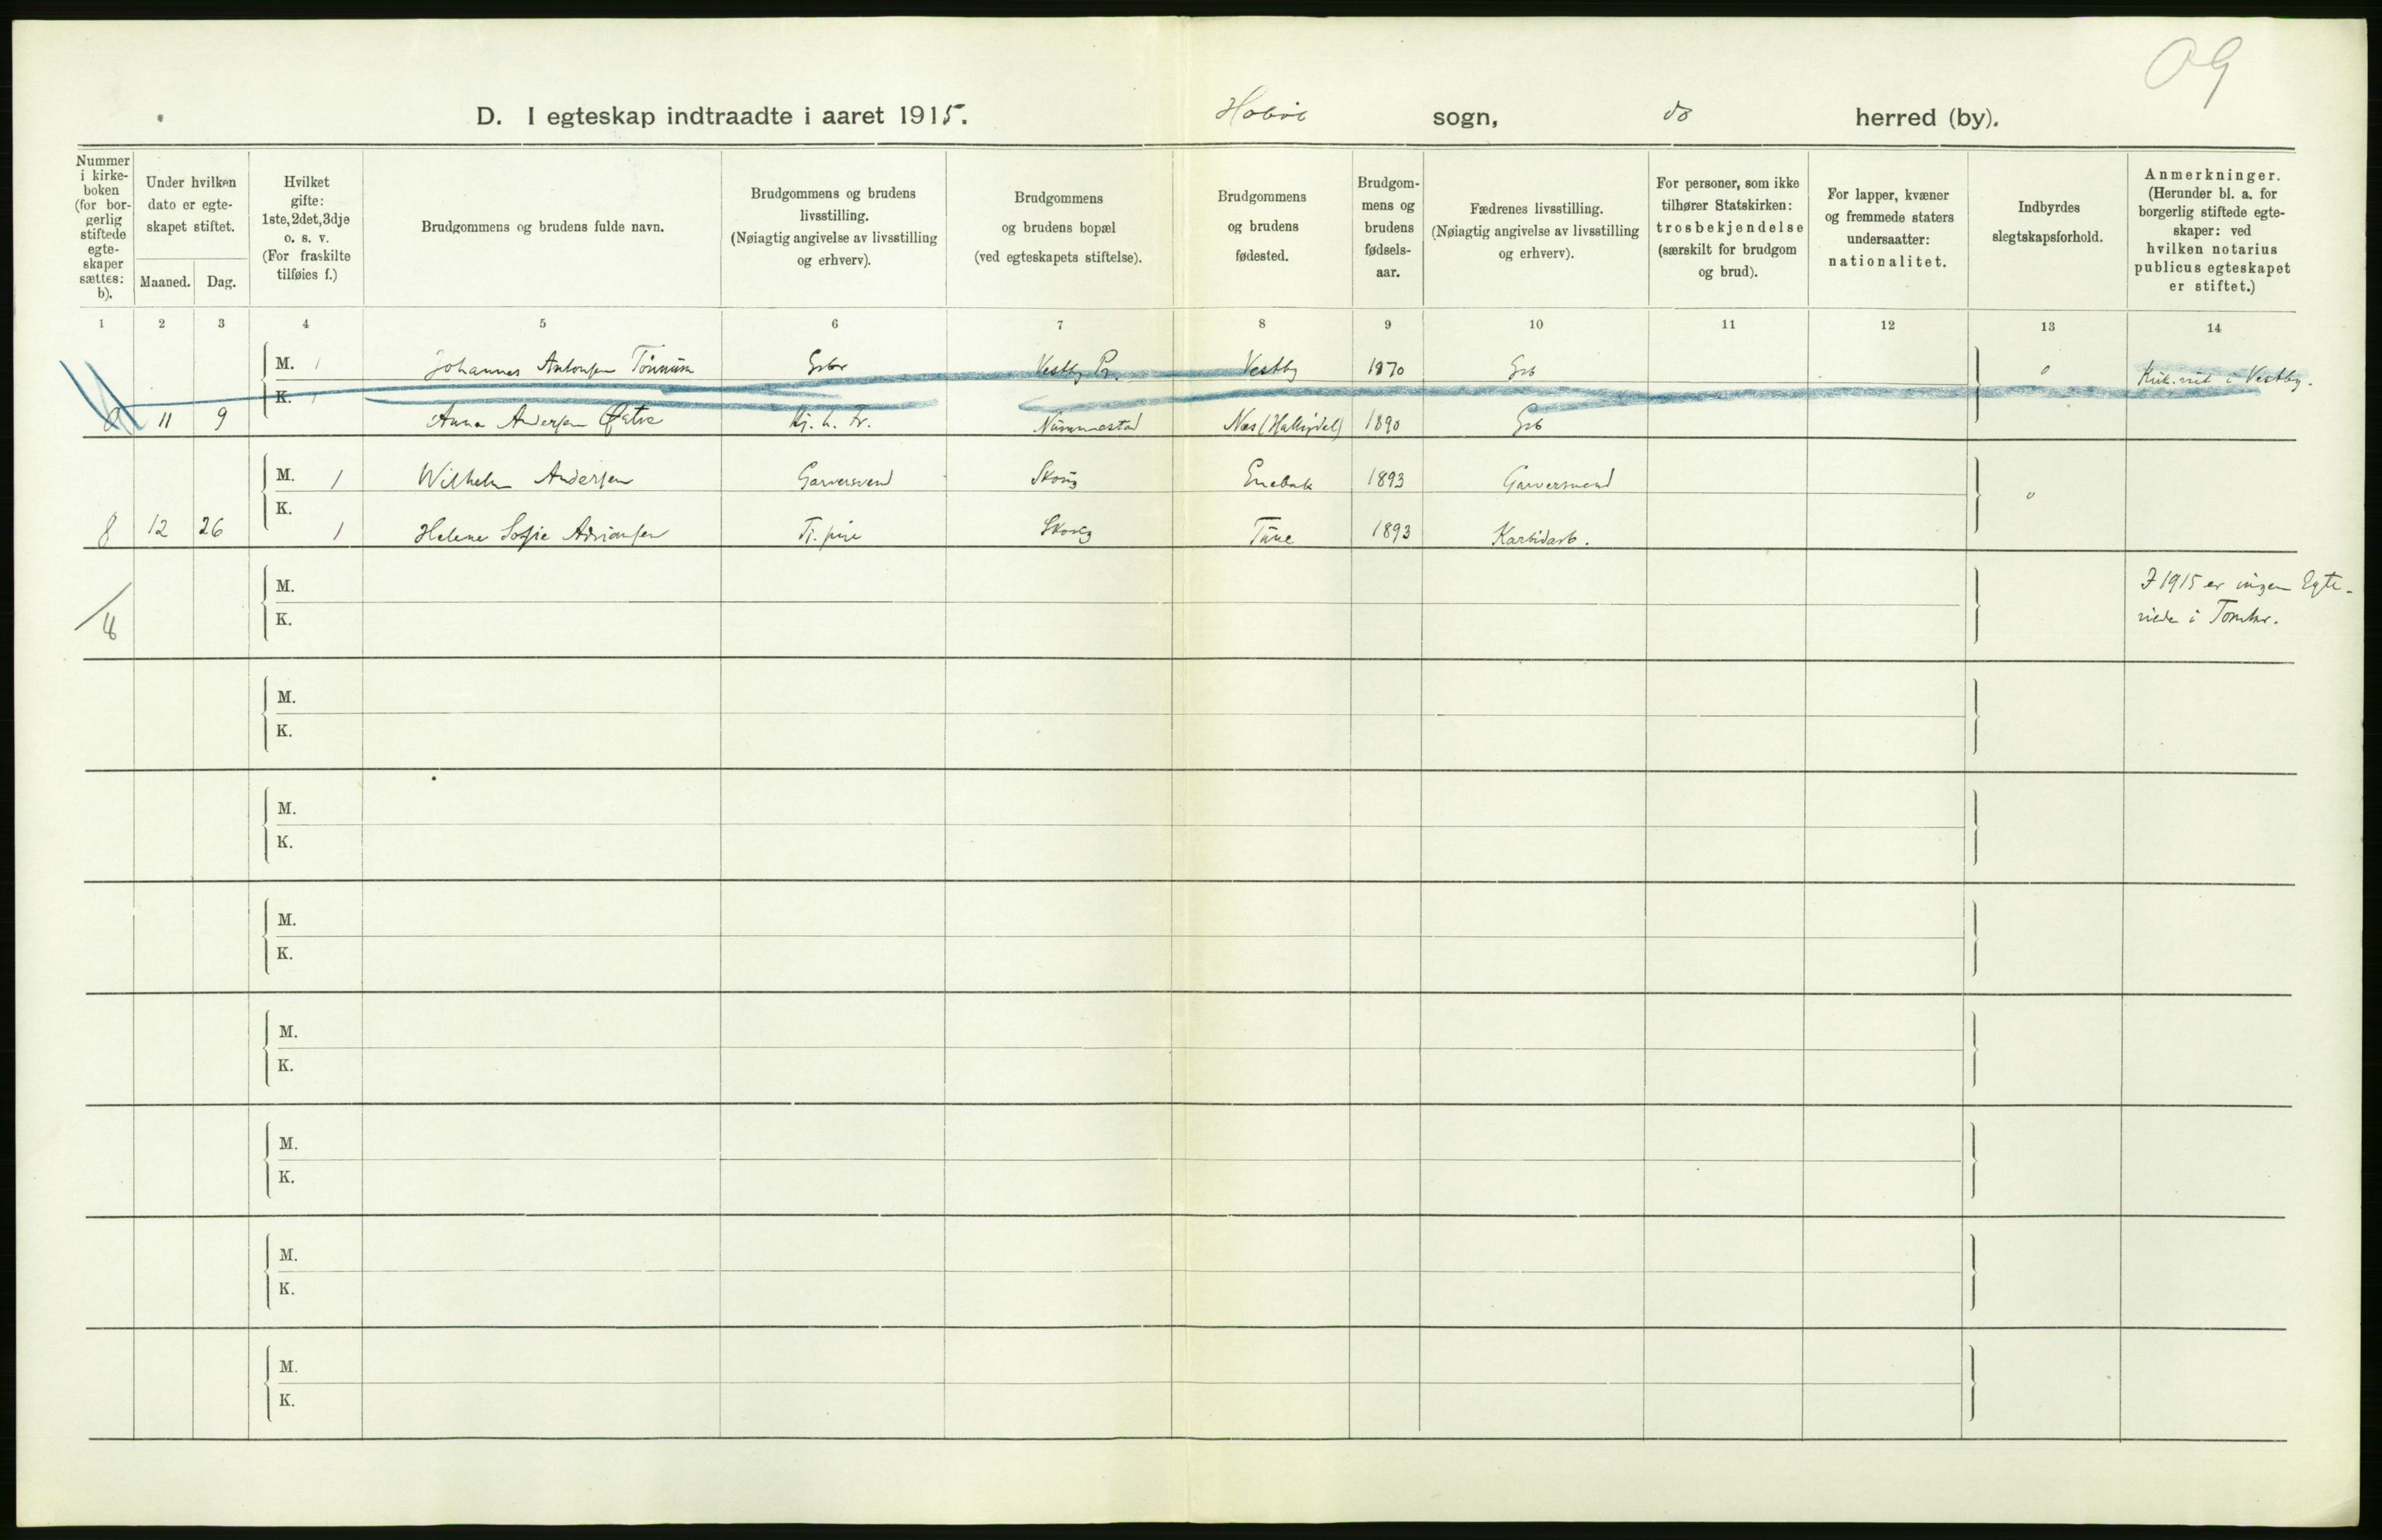 09
D. I egteskap indtraadte i aaret 1915. Hobøl sogn, do herred (by).
Nummer i kirke-boken (for bor-gerlig stiftede egte-skaper sættes: b).
Under hvilken dato er egte-skapet stiftet.
Maaned. Dag.
Hvilket gifte: 1ste, 2det, 3dje o. s. v. (For fraskilte tilføies f.)
Brudgommens og brudens fulde navn.
Brudgommens og brudens livsstilling. (Nøiagtig angivelse av livsstilling og erhverv).
Brudgommens og brudens bopæl (ved egteskapets stiftelse).
Brudgommens og brudens fødested.
Brudgom-mens og brudens fødsels-aar.
Fædrenes livsstilling. (Nøiagtig angivelse av livsstilling og erhverv).
For personer, som ikke tilhører Statskirken: trosbekjendelse (særskilt for brudgom og brud).
For lapper, kvæner og fremmede staters undersaatter: nationalitet.
Indbyrdes slegtskapsforhold.
Anmerkninger. (Herunder bl. a. for borgerlig stiftede egte-skaper: ved hvilken notarius publicus egteskapet er stiftet.)
1 2 3 4 5 6 7 8 9 10 11 12 13 14
M. 1 Johannes Antonsen Gbr Vestby Pr. Vestby 1870 Gb 0 Kirk. viet i Vestby.
11 9 K. 1 Anna Andersen Nes (Hallingdal) 1890 Gb
M. 1 Wilhelm Andersen Garversvend Skoug Enebak 1893 Garversvend 0
8 12 26 K. 1 Helene Sofie Adriansen Tj. pige Skoug Tune 1893 Karbidarb.
M. I 1915 er ingen Egte-
K. viede i Tomter.
M.
K.
M.
K.
M.
K.
M.
K.
M.
K.
M.
K.
M.
K.